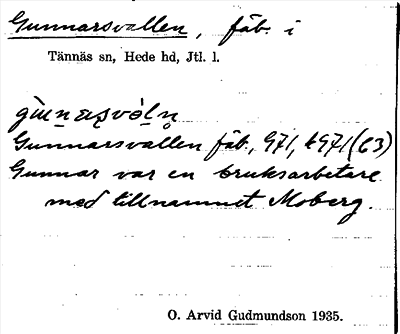 Gunnarsvallen, fäb. i
Tännäs sn, Hede hd, Jtl. l.
Gunnarsvallen fäb., 971, k971(63)
Gunnar var en bruksarbetare
med tillnamnet Moberg.
O. Arvid Gudmundson 1935.